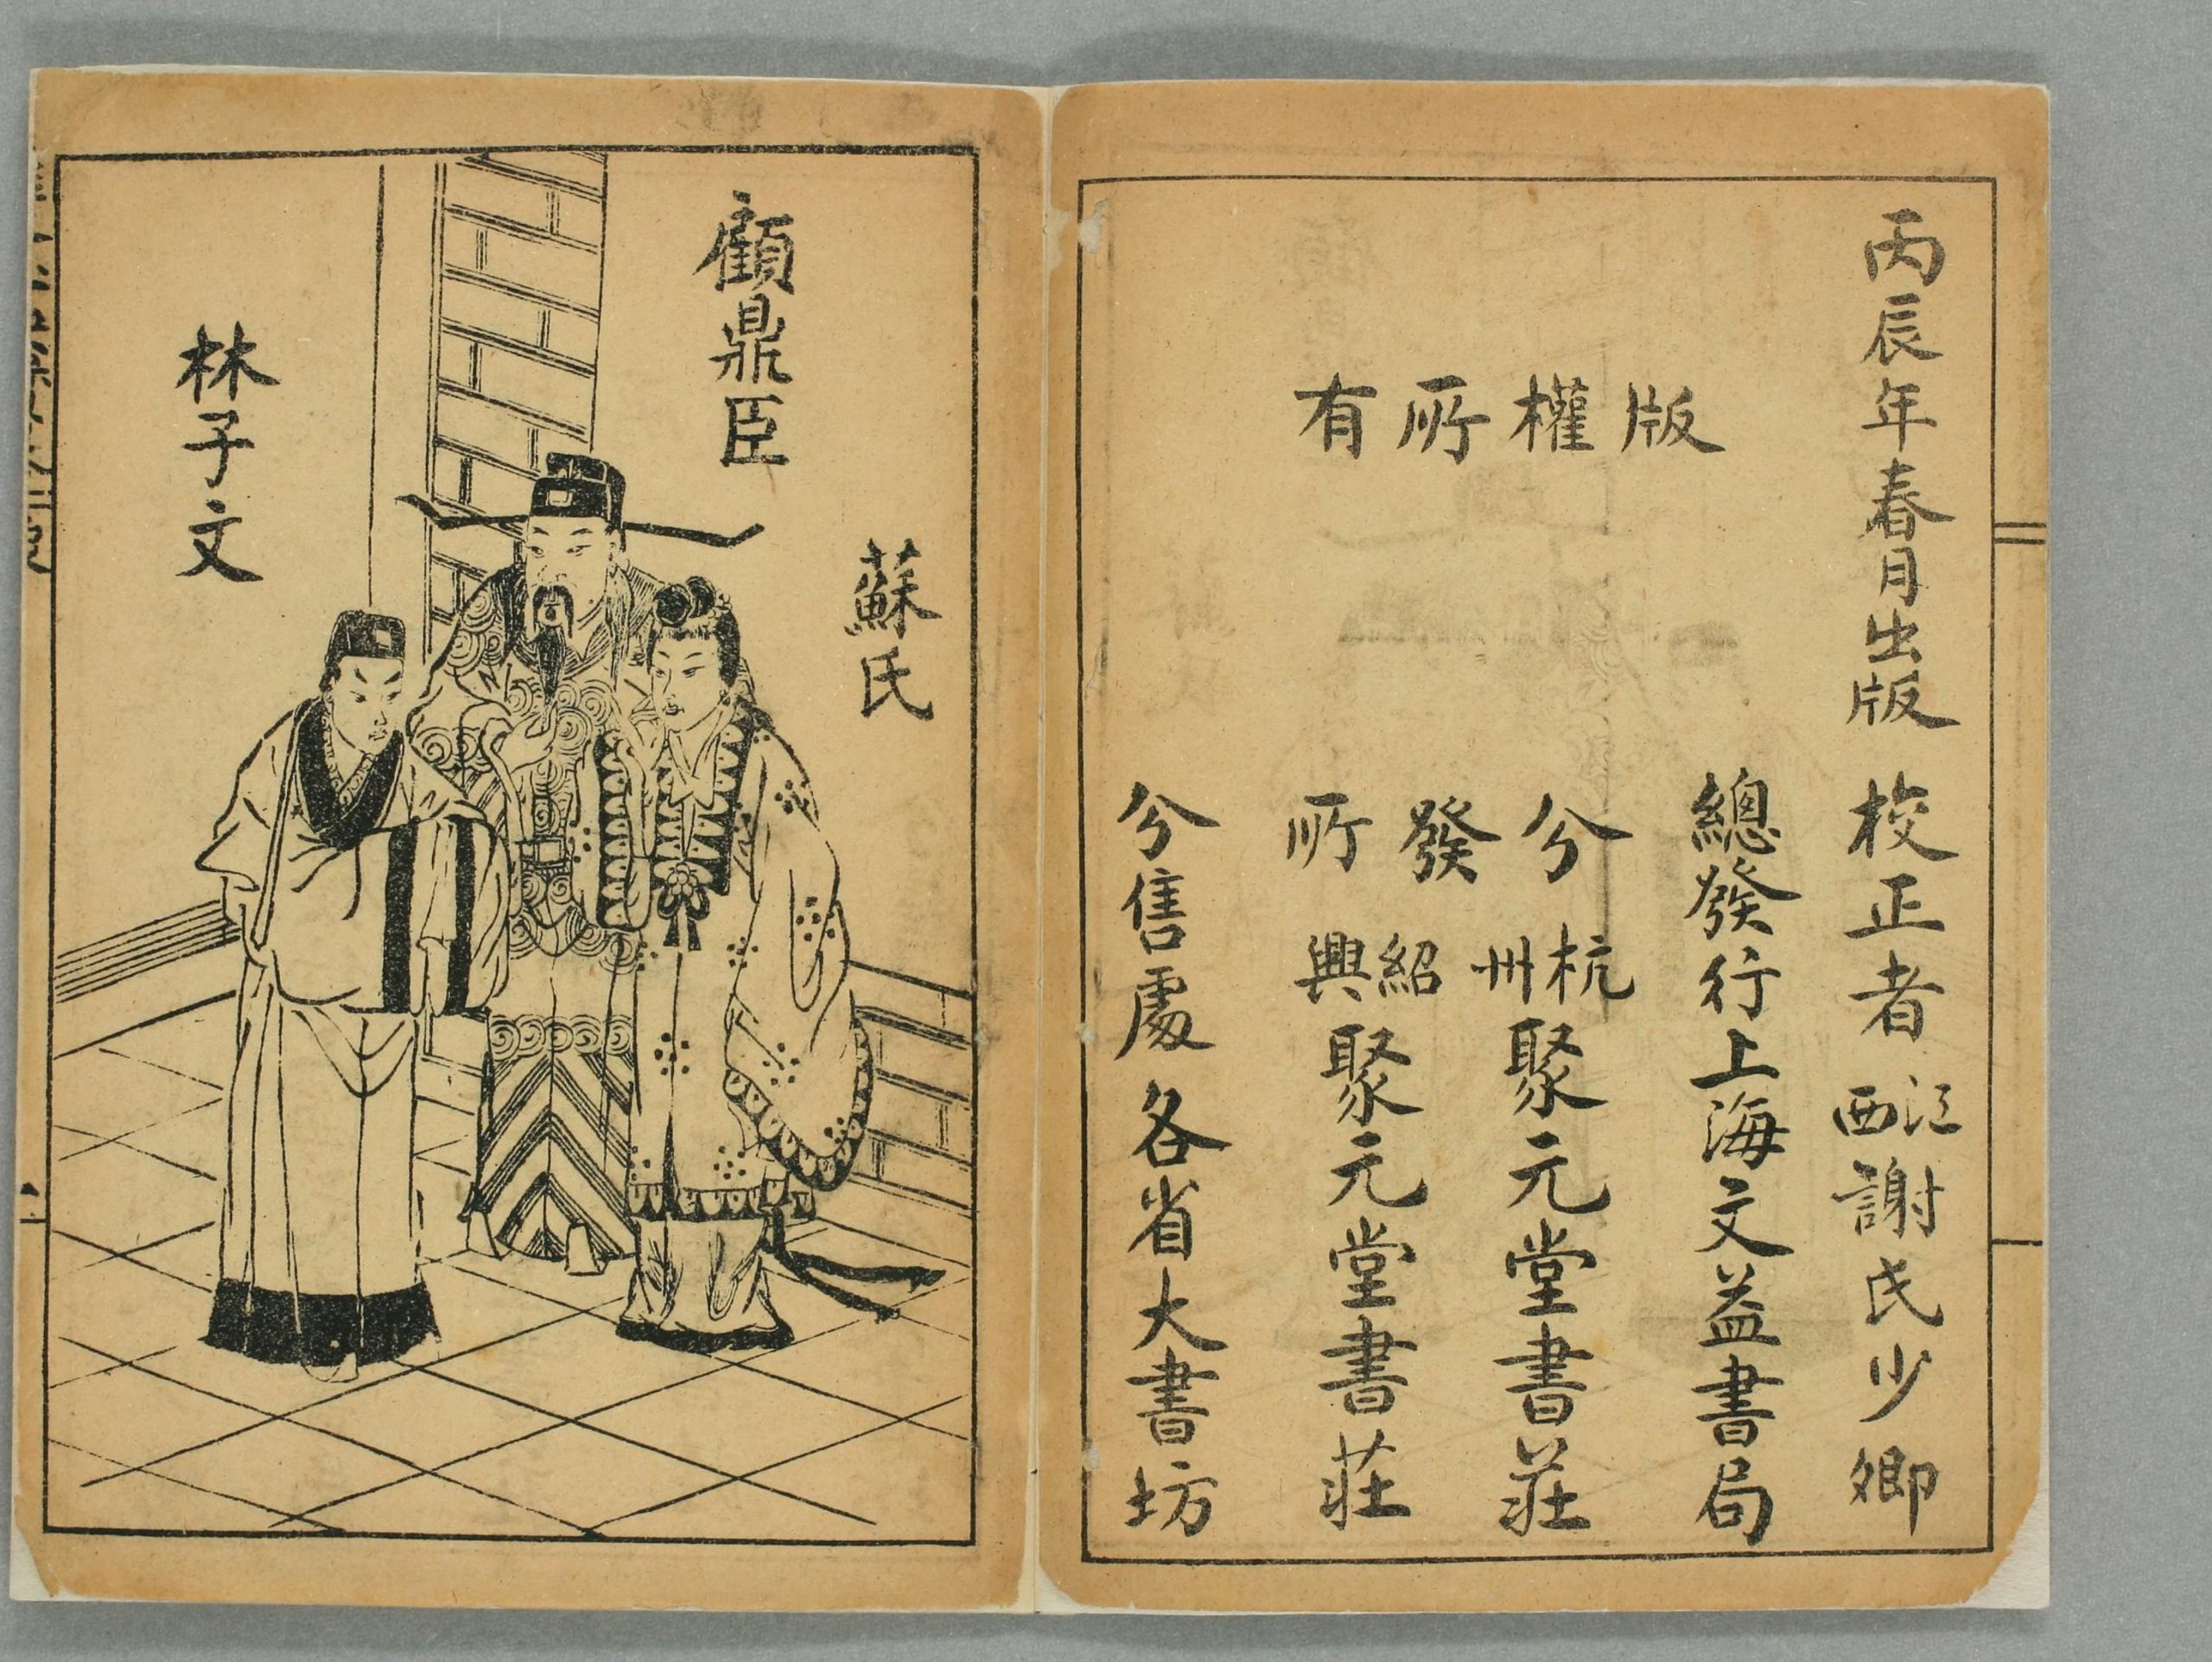 丙辰年春月出版
校正者江西謝氏少卿
版權所有
總發行上海文益書局
分發所
杭州聚元堂書莊
紹興聚元堂書莊
分售處各省大書坊
蘇氏
顧鼎臣
林子文